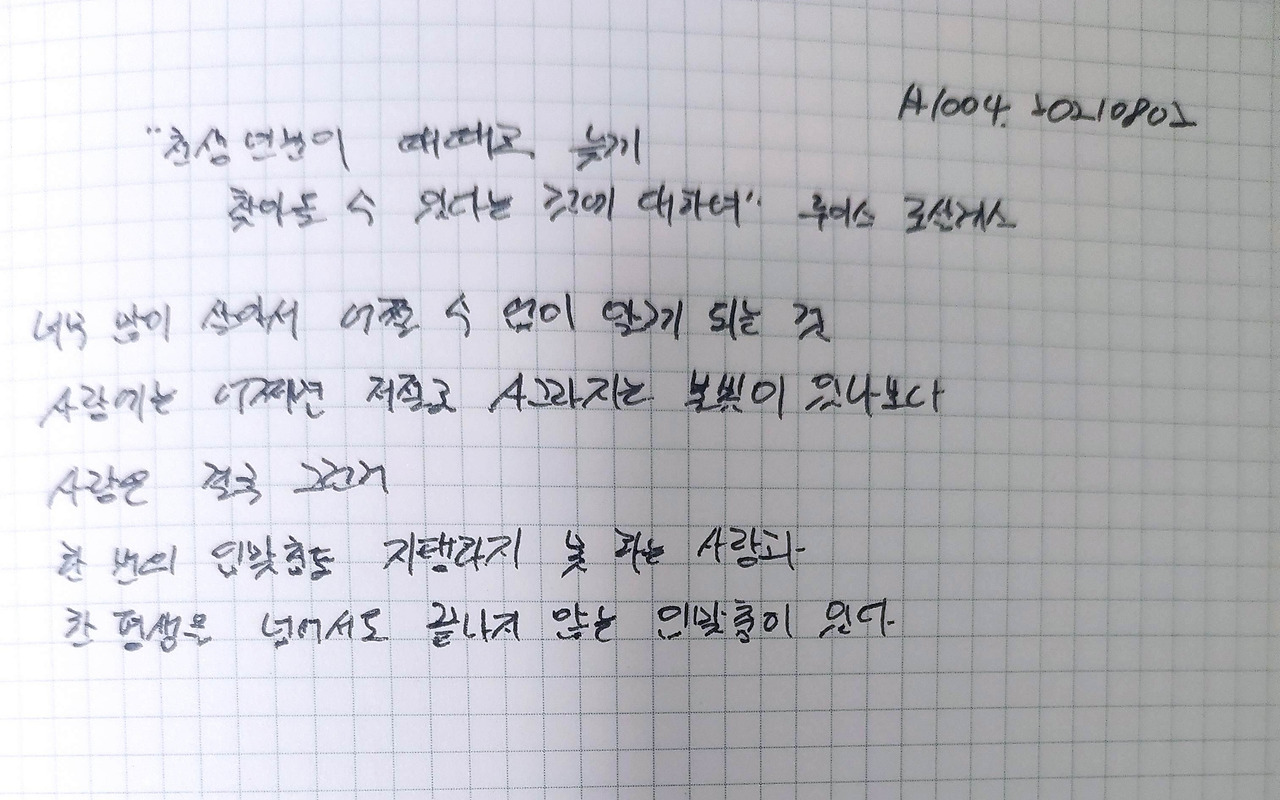 A1004. 20210802
"천생연분이 때때로 늦게
찾아올 수 있다는 것에 대하여" 루이스 로살레스
너무 많이 살아서 어쩔 수 없이 알게 되는 것
사랑에는 어쩌면 저절로 사그라지는 불빛이 있나보다
사랑은 결국 그런거
한 번의 입맞춤도 지탱하지 못 하는 사랑과
한 평생을 넘어서도 끝나지 않는 입맞춤이 있다